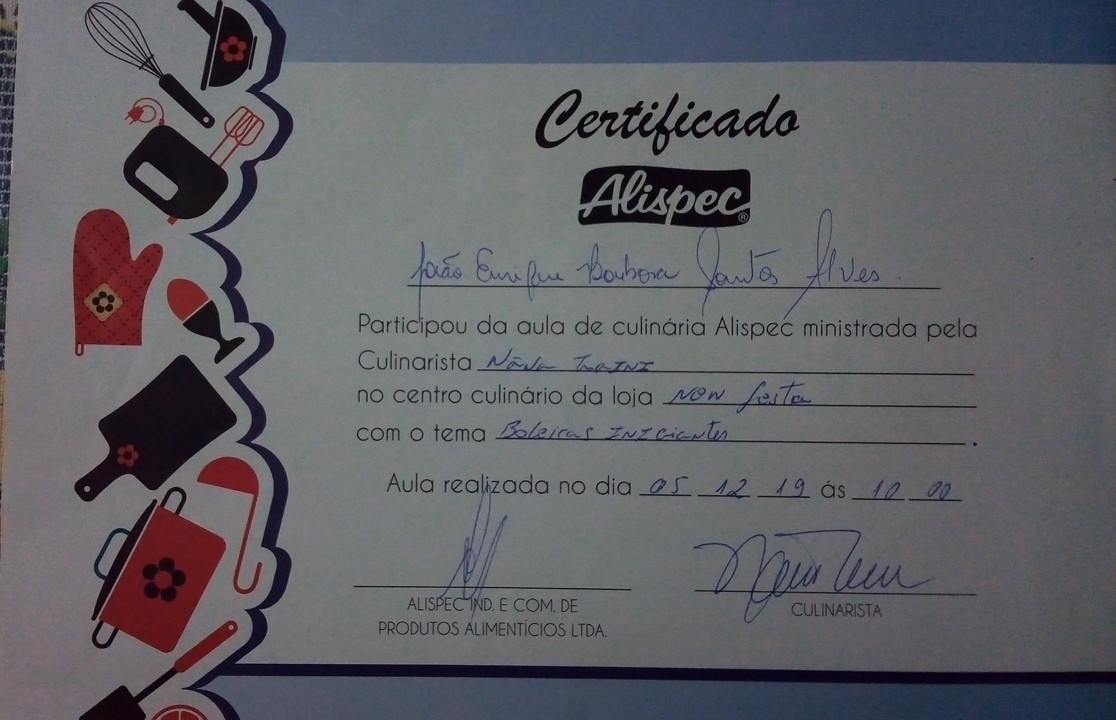 Certificado
Alispec®
João Enrique Barbosa Santos Alves
Participou da aula de culinária Alispec ministrada pela
Culinarista
no centro culinário da loja New festa
com o tema Boleiras INICiantes.
Aula realizada no dia 05 12 19 ás 10 00
ALISPEC IND. E COM. DE
PRODUTOS ALIMENTÍCIOS LTDA.
CULINARISTA